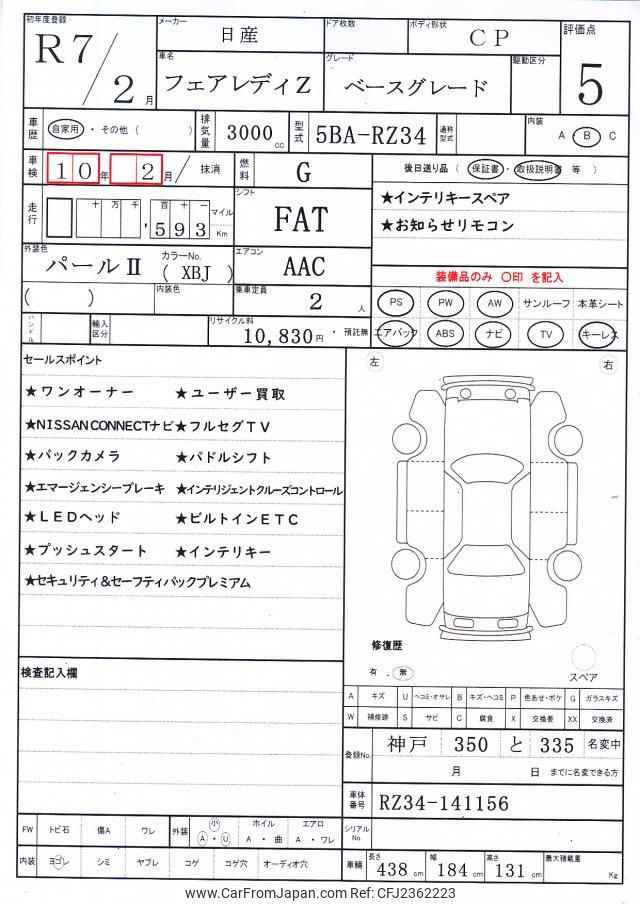 初年度登録 メーカー ドア枚数 ボディ形状 評価点
R7/2月 日産 CP 5
車名 グレード 駆動区分
フェアレディZ ベースグレード
車歴 自家用・その他( ) 排気量 3000cc 型式 5BA-RZ34 通称型式 内装 A B C
車検 10年 2月/抹消 燃料 G 後日送り品 (保証書・取扱説明書 等)
走行 十 万 千 百 十 一 マイル シフト ★インテリキースペア
,593 Km FAT ★お知らせリモコン
外装色 カラーNo. エアコン
パールⅡ (XBJ) AAC 装備品のみ 〇印 を記入
( ) 内装色 乗車定員 2人 PS PW AW サンルーフ 本革シート
ハンドル 輸入区分 リサイクル料 10,830円・預託無 エアバック ABS ナビ TV キーレス
セールスポイント 左 右
★ワンオーナー ★ユーザー買取
★NISSANCONNECTナビ★フルセグTV
★バックカメラ ★パドルシフト
★エマージェンシーブレーキ ★インテリジェントクルーズコントロール
★LEDヘッド ★ビルトインETC
★プッシュスタート ★インテリキー
★セキュリティ&セーフティパックプレミアム
修復歴
有 . 無 スペア
検査記入欄
A キズ U ヘコミ・オサレ B キズ・ヘコミ P 色あせ・ボケ G ガラスキズ
W 補修跡 S サビ C 腐食 X 交換要 XX 交換済
登録No. 神戸 350 と 335 名変中
月 日 までに名変できる方
車体番号 RZ34-141156
FW トビ石 傷A ワレ 外装 小 A・U ホイル A・曲 エアロ A・ワレ シリアルNo.
内装 ヨゴレ シミ ヤブレ コゲ コゲ穴 オーディオ穴 車輛 長さ 438cm 幅 184cm 高さ 131cm 最大積載量 Kg
www.CarFromJapan.com Ref: CFJ2362223